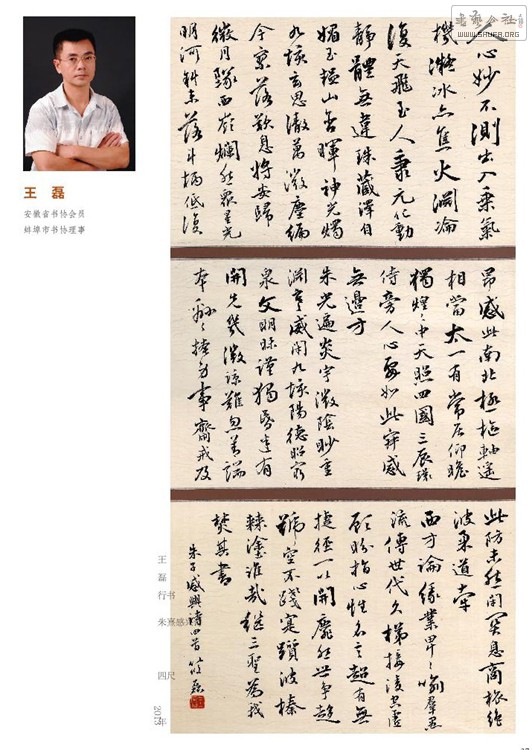 書法公社
WWW.SHUFA.ORG
王 磊
安徽省书协会员
蚌埠市书协理事
人心妙不測出入乘氣
機凝冰亦焦火淵淪
復天飛至人秉元化動
靜體無違珠藏澤自
媚玉韞山含暉神光燭
九垓玄思徹萬微塵編
今寥落歎息將安歸
微月隳西嶺爛然眾星光
明河斜未落斗柄低復
昂感此南北極樞軸遥
相當太一有常居仰瞻
獨煌煌中天照四國三辰環
侍旁人心要如此寂感
無邊方
朱光遍炎宇微陰眇重
淵寒威閉九垓陽德昭窮
泉文明昧謹獨昏迷有
開先幾微諒難忽善端
本綿綿掩身事齋戒及
此防未然閉關息商旅絕
彼柔道牽
西方論緣業卑卑喻群愚
流傳世代久梯接凌空虛
顧盼指心性名言超有無
捷徑一以開靡然世爭趨
號空不踐實躓彼榛
棘塗誰哉繼三聖為我
焚其書
朱子感興詩四首
王磊
行书
朱熹感兴
四尺
2015年